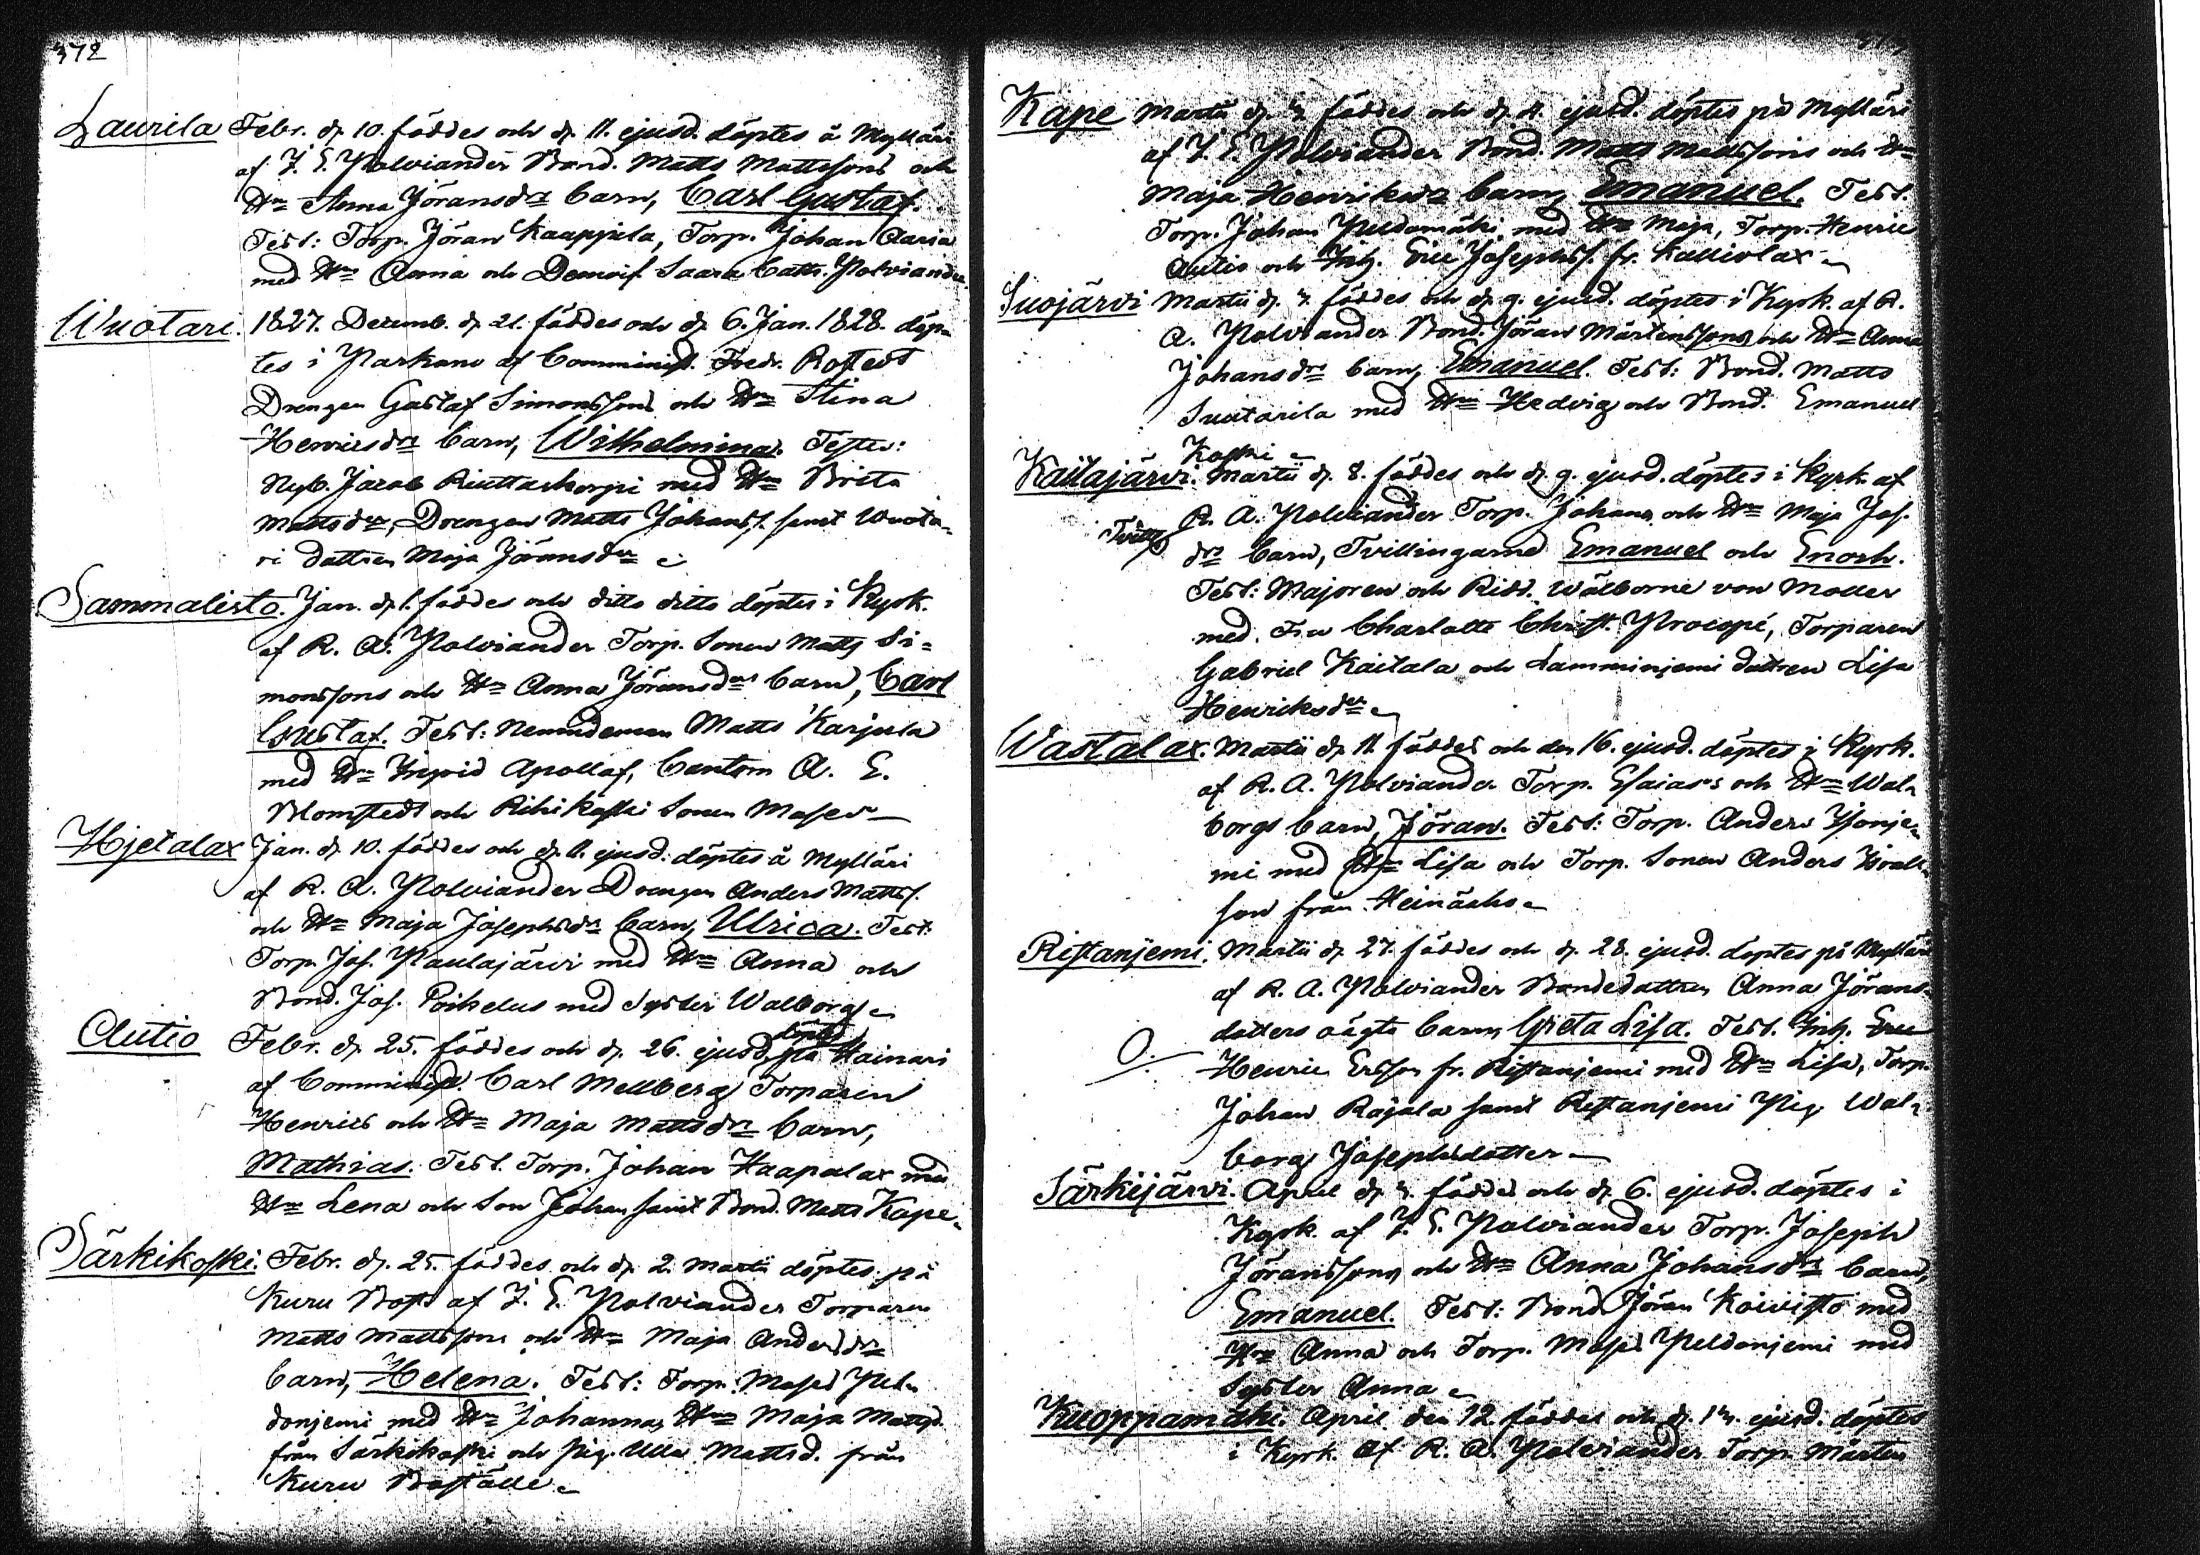 372
Laurila Febr. d. 10. föddes och d. 11. ejusd. döptes å Mylläri
af J. E. Polviander Bond. Matts Mattssons och
Hn Anna Jöransdrs barn, Carl Gustaf.
Test: Torp. Jöran Kaappila, Torp. Johan Aaria
med Hn Anna och Demois. Saara Cath. Polviander
Wuotari. 1827. Decemb. d. 21. föddes och d. 6. Jan. 1828. döp=
tes i Parkano af Comminist. Fredr. Rostedt
Drengen Gustaf Simonssons och Hn Stina
Henricsdrs barn, Wilhelmina. Testes:
Nyb. Jacob Riuttaskorpi med Hn Brita
Mattsdr, Drengen Matts Johanss. samt Wuota=
ri dottren Maja Jöransdr
Sammalisto. Jan. d. 1. föddes och ditto ditto döptes i Kyrk.
af R. A. Polviander Torp. Sonen Matts Si=
monssons och Hn Anna Jöransdrs barn, Carl
Gustaf. Test: Nemndeman Matts Karjula
med Hn Ingrid Apollof, Cantorn A. E.
Blomstedt och Rihikoski Sonen Moses
Hjetalax Jan. d. 10. föddes och d. 11. ejusd. döptes å Mylläri
af R. A. Polviander Drengen Anders Mattss.
och Hn Maja Josephsdrs barn, Ulrica. Test:
Torp. Jos. Paulajärvi med Hn Anna och
Bond. Jos. Poikelus med Syster Walborg
Autio Febr. d. 25. föddes och d. 26. ejusd. döptes på Hainari
af Comminist. Carl Mellberg Torparen
Henrics och Hn Maja Mattsdrs barn,
Mathias. Test. Torp. Johan Haapalax med
Hn Lena och Son Johan samt Bond. Matts Kape
Särkikoski. Febr. d. 25. föddes och d. 2. Martii döptes på
Kuru Bost. af J. E. Polviander Torparen
Matts Mattssons och Hn Maja Andersdrs
barn, Helena. Test: Torp. Moses Pel=
donjemi med Hn Johanna, Hn Maja Mattsd.
från Särkikoski och pig. Ulla Mattsd. från
Kuru Boställe
Kape Martii d. 4. föddes och d. 4. ejusd. döptes på Mylläri
af J. E. Polviander Bond. Matts Mattssons och Hn
Maja Henriksdrs barn, Emanuel. Test.
Torp. Johan Peldomäki med Hn Maja, Torp. Henric
Autio och Inh. Eric Josephss. fr. Kalliolax
Suojärvi Martii d. 4. föddes och d. 9. ejusd. döptes i Kyrk. af R.
A. Polviander Bond. Jöran Mårtenssons och Hn Anna
Johansdrs barn, Emanuel. Test: Bond. Matts
Suutarila med Hn Hedvig och Bond. Emanuel
Koski
Kaitajärvi. Martii d. 8. föddes och d. 9. ejusd. döptes i Kyrk. af
R. A. Polviander Torp. Johans och Hn Maja Jos.
Tvill.
drs barn, Tvillingarne Emanuel och Enoch.
Test: Majoren och Ridd. Wälborne von Moller
med Fru Charlotte Christ. Procopé, Torparen
Gabriel Kaitala och Lamminjemi dottren Lisa
Henriksdr
Wastalax. Martii d. 11. föddes och den 16. ejusd. döptes i Kyrk.
af R. A. Polviander Torp. Esaias's och Hn Wal=
borgs barn, Jöran. Test: Torp. Anders Isonje=
mi med Hn Lisa och Torp. Sonen Anders
son från Heinäaho
Ristanjemi. Martii d. 27. föddes och d. 28. ejusd. döptes på Mylläri
af R. A. Polviander Bondedottren Anna Jörans=
dotters oägta barn, Greta Lisa. Test. Inh. Eric
O.
Henric Ersson fr. Ristanjemi med Hn Lisa, Torp.
Johan Rajala samt Ristanjemi Pig. Wal=
borg Josephsdotter
Särkijärvi. April d. 4. föddes och d. 6. ejusd. döptes i
Kyrk. af J. E. Polviander Torp. Joseph
Jöranssons och Hn Anna Johansdrs barn,
Emanuel. Test: Bond. Jöran Koivisto med
Hn Anna och Torp. Moses Peldonjemi med
Syster Anna
Kuoppamäki. April den 12. föddes och d. 14. ejusd. döptes
i Kyrk. af R. A. Polviander Torp. Mårten